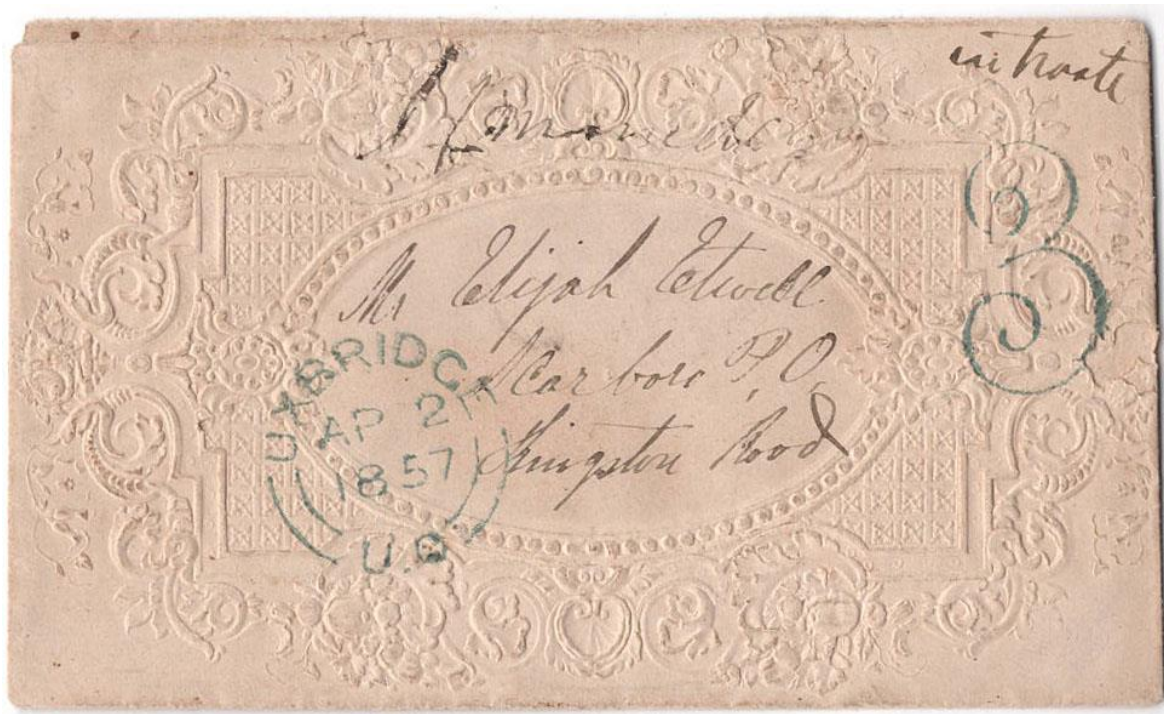 Mr Elijah Etwell
Scarboro P.O.
Kingston Road
UXBRIDG
AP 2
1857
U.C
3